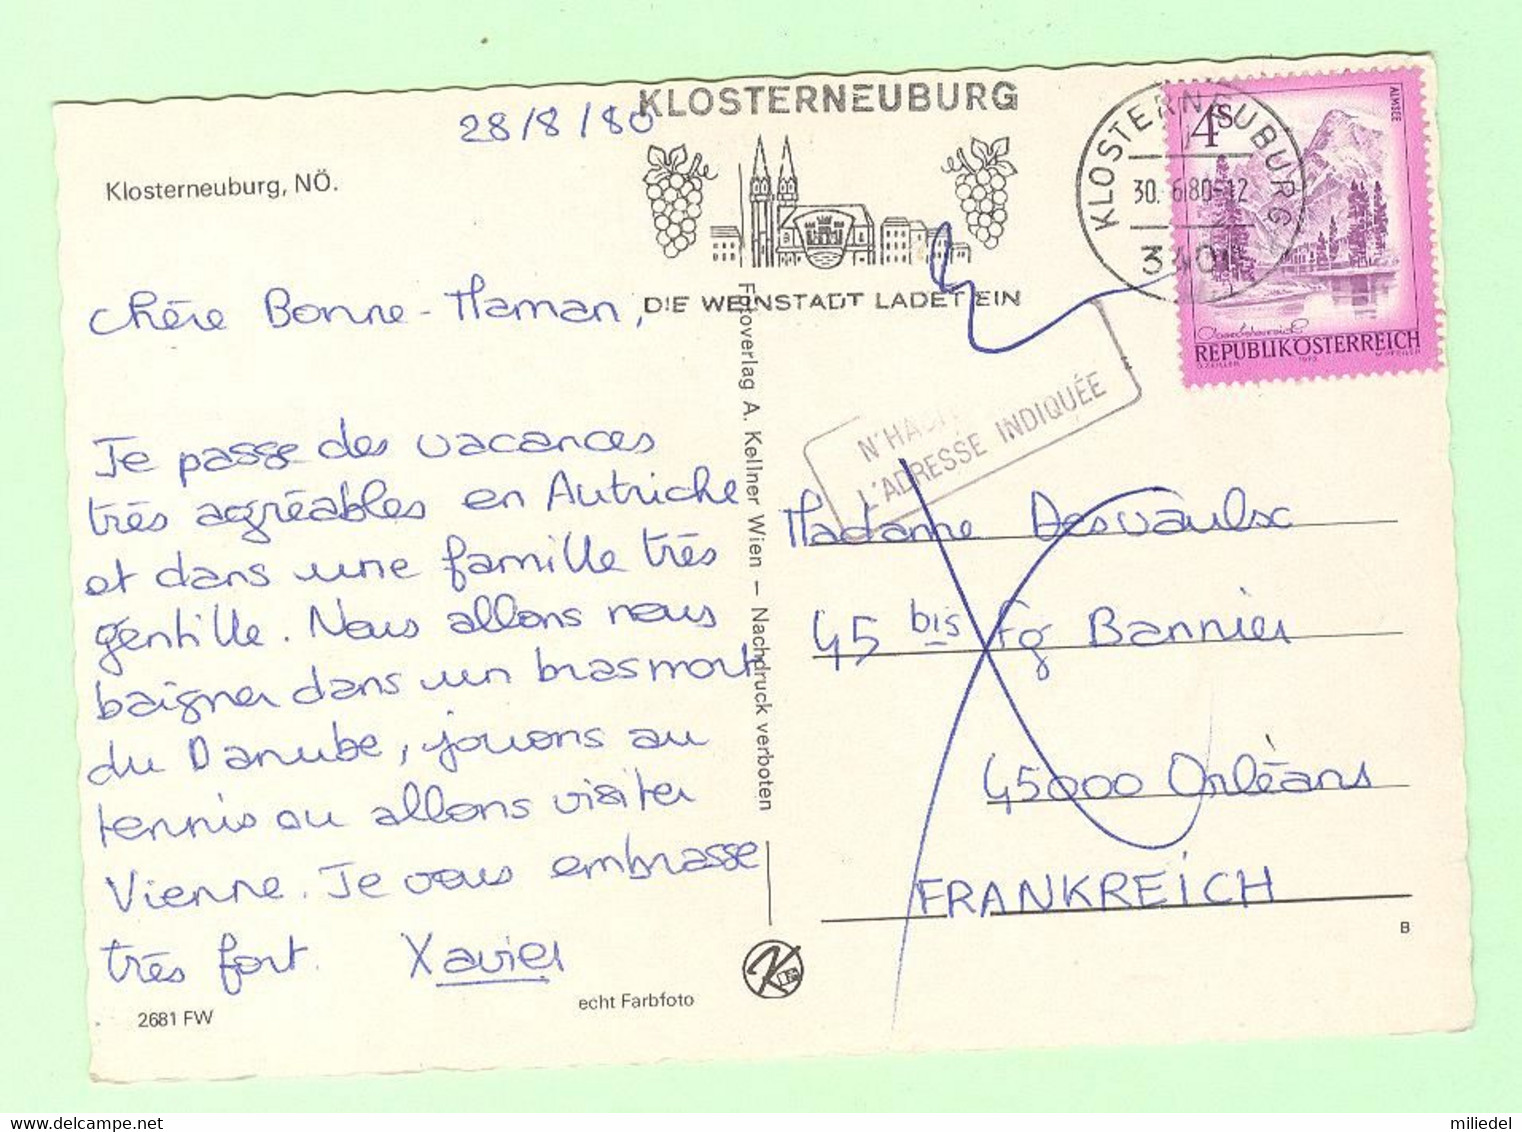 28/8/80
KLOSTERNEUBURG
DIE WEINSTADT LADET EIN
KLOSTERNEUBURG
30. 6.80-12
4S
ALMSEE
REPUBLIK ÖSTERREICH
1973
Klosterneuburg, NÖ.
Chère Bonne-Maman,
Je passe des vacances
très agréables en Autriche
et dans une famille très
gentille. Nous allons nous
baigner dans un bras mort
du Danube, jouons au
tennis ou allons visiter
Vienne. Je vous embrasse
très fort. Xavier
2681 FW
echt Farbfoto
Fotoverlag A. Kellner Wien – Nachdruck verboten
L'ADRESSE INDIQUÉE
Madame Desvaulx
45 bis Fg Bannier
45000 Orléans
FRANKREICH
B
www.delcampe.net
miliedel